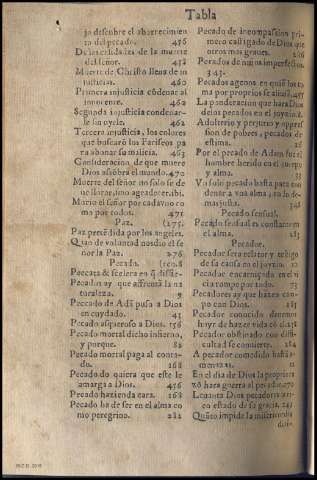 Tabla
jo descubre el aborrecimien
to del pecado. 456
De las calidades de la muerte
del señor. 458
Muerte de Christo llena de in
justicias. 460
Primera injusticia cõdenar al
innocente. 462
Segunda injusticia condenar-
le sin oyrle. 462
Tercera injusticia, los colores
que buscarõ los Fariseos pa
ra abonar su malicia. 463
Consideracion, de que muere
Dios assombra el mundo. 470
Muerte del señor no solo se de
ue llorar, sino agradecer. ibi.
Murio el señor por cada vno co
mo por todos. 471
Paz. (175.
Paz percebida por los angeles.
Quan de voluntad nos dio el se
ñor la Paz. 276
Pecado. 
Peccata & scelera en q̃ difiere.
Pecados ay que afrentã la na
turaleza. 9
Pecado de Adã puso a Dios
en cuydado. 45
Pecado asqueroso a Dios. 156
Pecado mortal dicho infierno,
y porque. 82
Pecado mortal paga al conta-
do. 168
Pecado do quiera que este le
amarga a Dios. 456
Pecado hazienda cara. 168
Pecado ha de ser en el alma co
mo peregrino. 212
Pecado de incompassion pri-
mero castigado de Dios que
otros mas graues. 266
Pecados de niños imperfectos.
343.
Pecados agenos en quiẽ los to
ma por proprios se aliuiã. 457
La ponderacion que hara Dios
de los pecados en el joyzio.
Adulterio y perjurio y oppres
sion de pobres, pecados de
estima. 26
Por el pecado de Adam fue el
hombre herido en el cuerpo
y alma. 33
Vn solo pecado basta para con
denar a vna alma, y no lo de-
mas justa. 348
Pecado sensual.
Pecado sensual es constante en
el alma. 283
Pecador.
Pecador sera relator y testigo
de su causa en el joyzio. 12
Pecador encarniçado en el vi
cio rompe por todo. 73
Pecadores ay que hazen cam-
po con Dios. 283
Pecador conocido deuemos
huyr de hazer vida cõ el.
Pecador obstinado con diffi-
cultad se conuierte. 284
A pecador comedido basta a-
menazas. 11
En el dia de Dios la propria
zõ hara guerra al pecador. 270
Leuanta Dios pecadores a al
to estado de su gracia. 245
Quãto impide la misericordia
diuin-